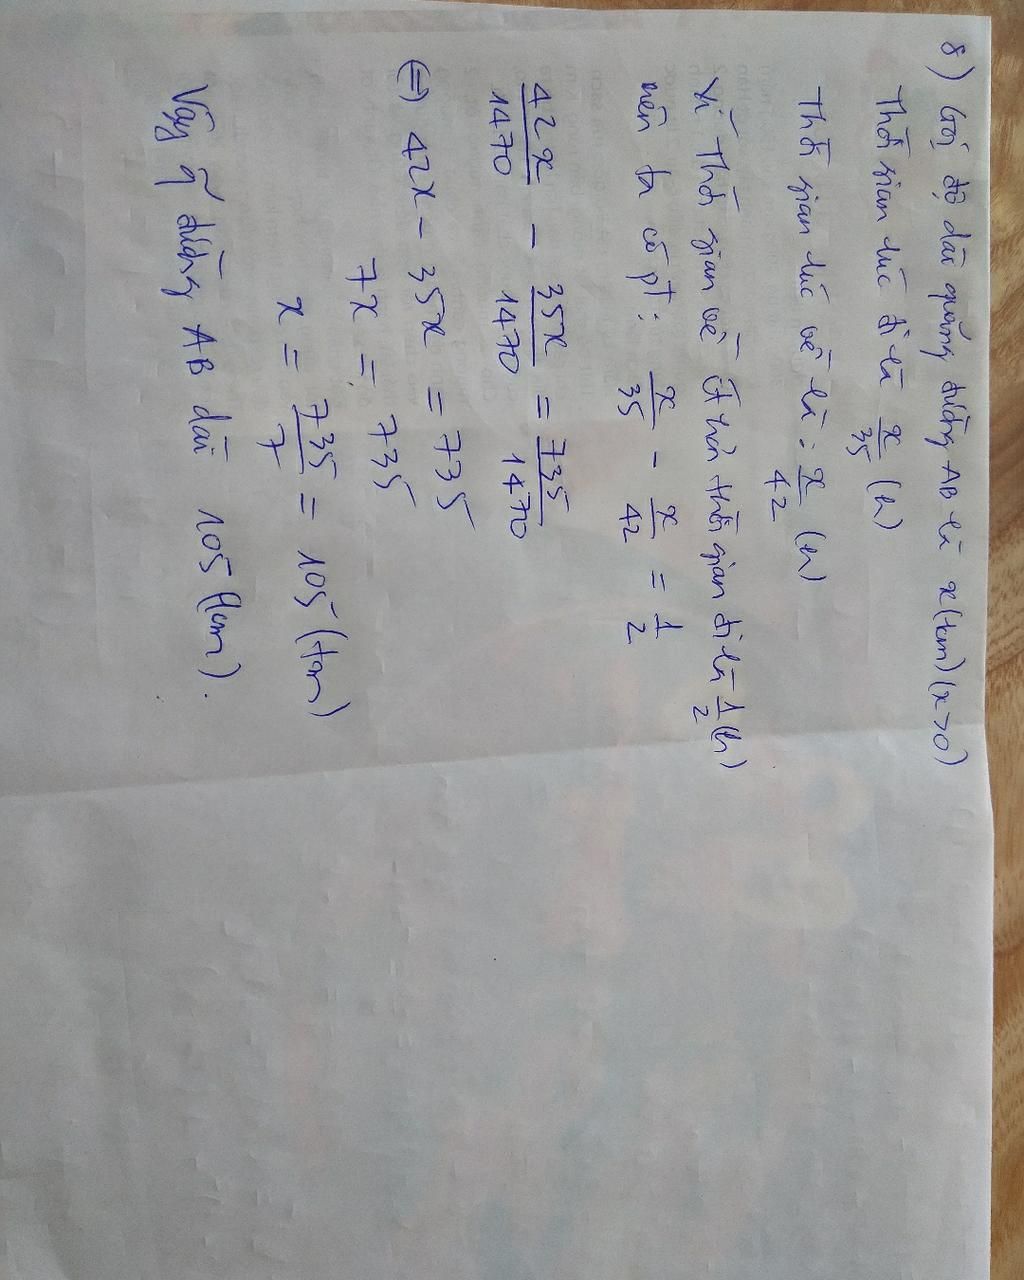 8) Gọi độ dài quãng đường AB là x(km) (x>0)
Thời gian lúc đi là x/35 (h)
Thời gian lúc về là: x/42 (h)
Vì thời gian về ít hơn thời gian đi là 1/2 (h)
nên ta có pt: x/35 - x/42 = 1/2
42x/1470 - 35x/1470 = 735/1470
(=) 42x - 35x = 735
7x = 735
x = 735/7 = 105 (km)
Vậy q~ đường AB dài 105 (km).